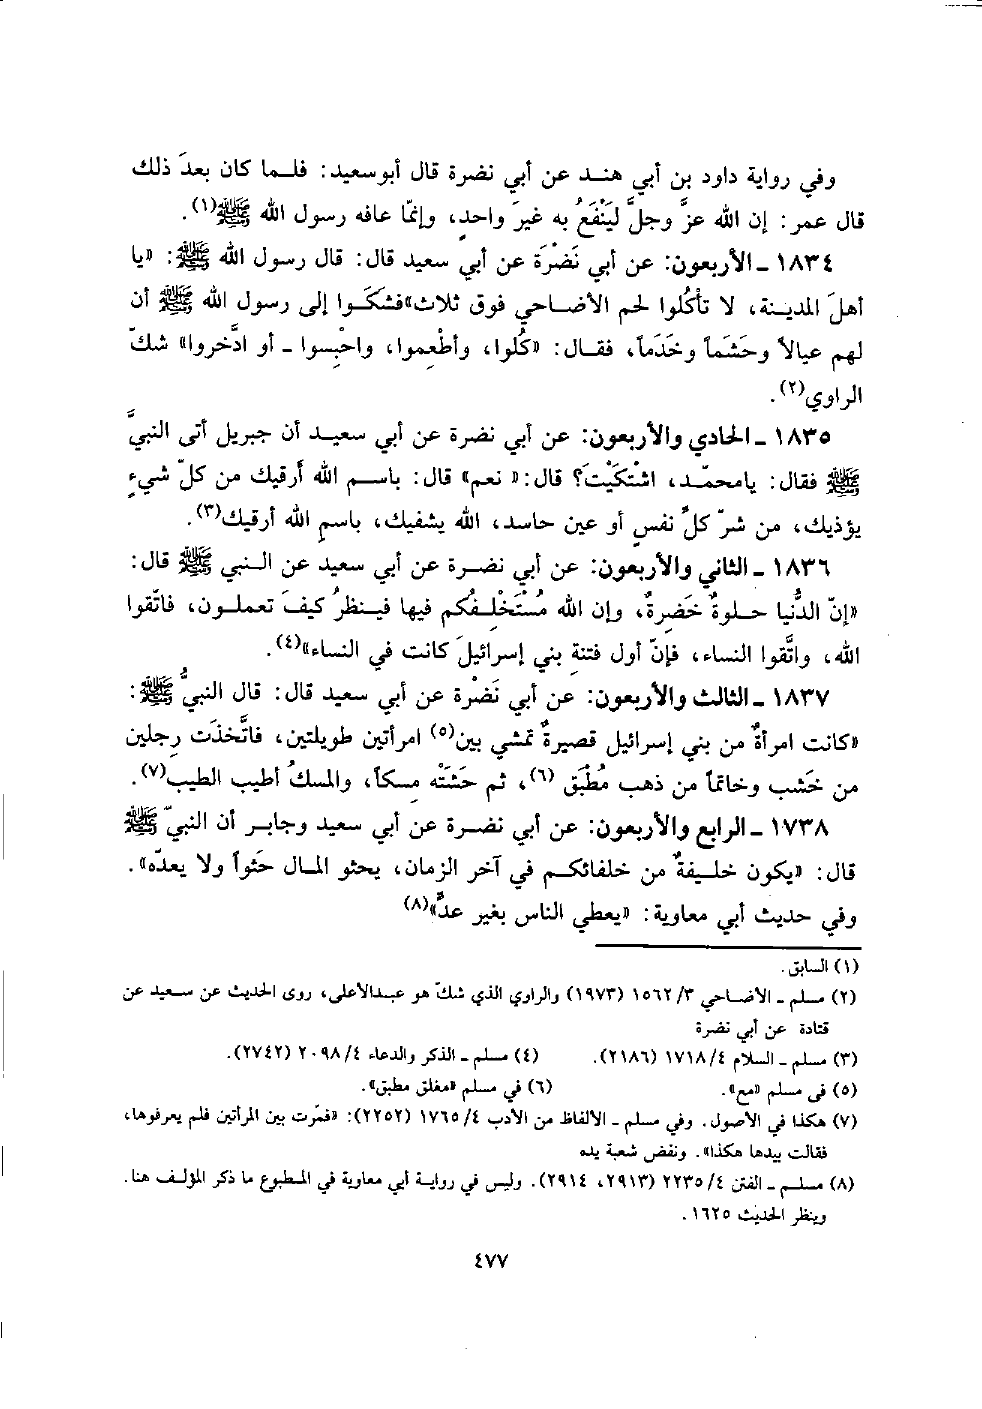 وفي رواية داود بن أبي هنـد عن أبي نضرة قال أبوسعيد: فلـما كان بعدَ ذلك
قال عمر: إن الله عزَّ وجلَّ لَيَنْفَعُ به غيرَ واحدٍ، وإنمّا عافه رسول الله ﷺ(١).
١٨٣٤ ـ الأربعون: عن أبي نَضْرَة عن أبي سعيد قال: قال رسول الله ﷺ: «يا
أهلَ المديـنة، لا تأكُلوا لحم الأضـاحي فوق ثلاث»فشكَـوا إلى رسول الله ﷺ أن
لهم عيالاً وحَشَماً وخَدَماً، فقـال: «كُلوا، وأطْعِموا، واحْبِسوا ـ أو ادَّخروا» شكّ
الراوي(٢).
١٨٣٥ ـ الحادي والأربعون: عن أبي نضرة عن أبي سعيـد أن جبريل أتى النبيَّ
ﷺ فقال: يامحمّـد، اشْتكَيْتَ؟ قال:« نعم» قال: باسـم الله أرقيك من كلّ شيءٍ
يؤذيك، من شرّ كلِّ نفسٍ أو عين حاسد، الله يشفيك، باسمِ الله أرقيك(٣).
١٨٣٦ ـ الثاني والأربعون: عن أبي نضـرة عن أبي سعيد عن النـبي ﷺ قال:
«إنّ الدُّنيا حلـوةٌ خَضِرةٌ، وإن الله مُسْتَخْلِـفُكم فيها فيـنظرُ كيفَ تعملـون، فاتّقوا
الله، واتَّقوا النساء، فإنّ أول فتنة بني إسرائيلَ كانت في النساء»(٤).
١٨٣٧ ـ الثالث والأربعون: عن أبي نَضْرة عن أبي سعيد قال: قال النبيُّ ﷺ:
«كانت امرأةٌ من بني إسرائيل قصيرةٌ تمشي بين(٥) امرأتين طويلتين، فاتَّخذَت رِجلين
من خَشب وخاتماً من ذهب مُطْبَق (٦)، ثم حَشَتْه مِسكاً، والمسكُ أطيب الطيب(٧).
١٧٣٨ ـ الرابع والأربعون: عن أبي نضـرة عن أبي سعيد وجابـر أن النبيّ ﷺ
قال: «يكون خلـيفةٌ من خلفائكـم في آخر الزمان، يحثو المـال حَثواً ولا يعدّه».
وفي حديث أبي معاوية: «يعطي الناس بغير عدٍّ»(٨)
(١) السابق.
(٢) مسلم ـ الأضـاحي ١٥٦٢/٣ (١٩٧٣) والراوي الذي شكّ هو عبدالأعلى، روى الحديث عن سـعيد عن
قتادة عن أبي نضرة
(٣) مسلم ـ السلام ١٧١٨/٤ (٢١٨٦).
(٤) مسلم ـ الذكر والدعاء ٢٠٩٨/٤ (٢٧٤٢).
(٥) في مسلم «مع».
(٦) في مسلم «مغلق مطبق».
(٧) هكذا في الأصول. وفي مسلم ـ الألفاظ من الأدب ١٧٦٥/٤ (٢٢٥٢): «فمّرت بين المرأتين فلم يعرفوها،
فقالت بيدها هكذا». ونفض شعبة يده
(٨) مسلـم ـ الفتن ٢٢٣٥/٤ (٢٩١٣، ٢٩١٤). وليس في روايـة أبي معاوية في المـطبوع ما ذكر المؤلـف هنا.
وينظر الحديث ١٦٢٥.
٤٧٧